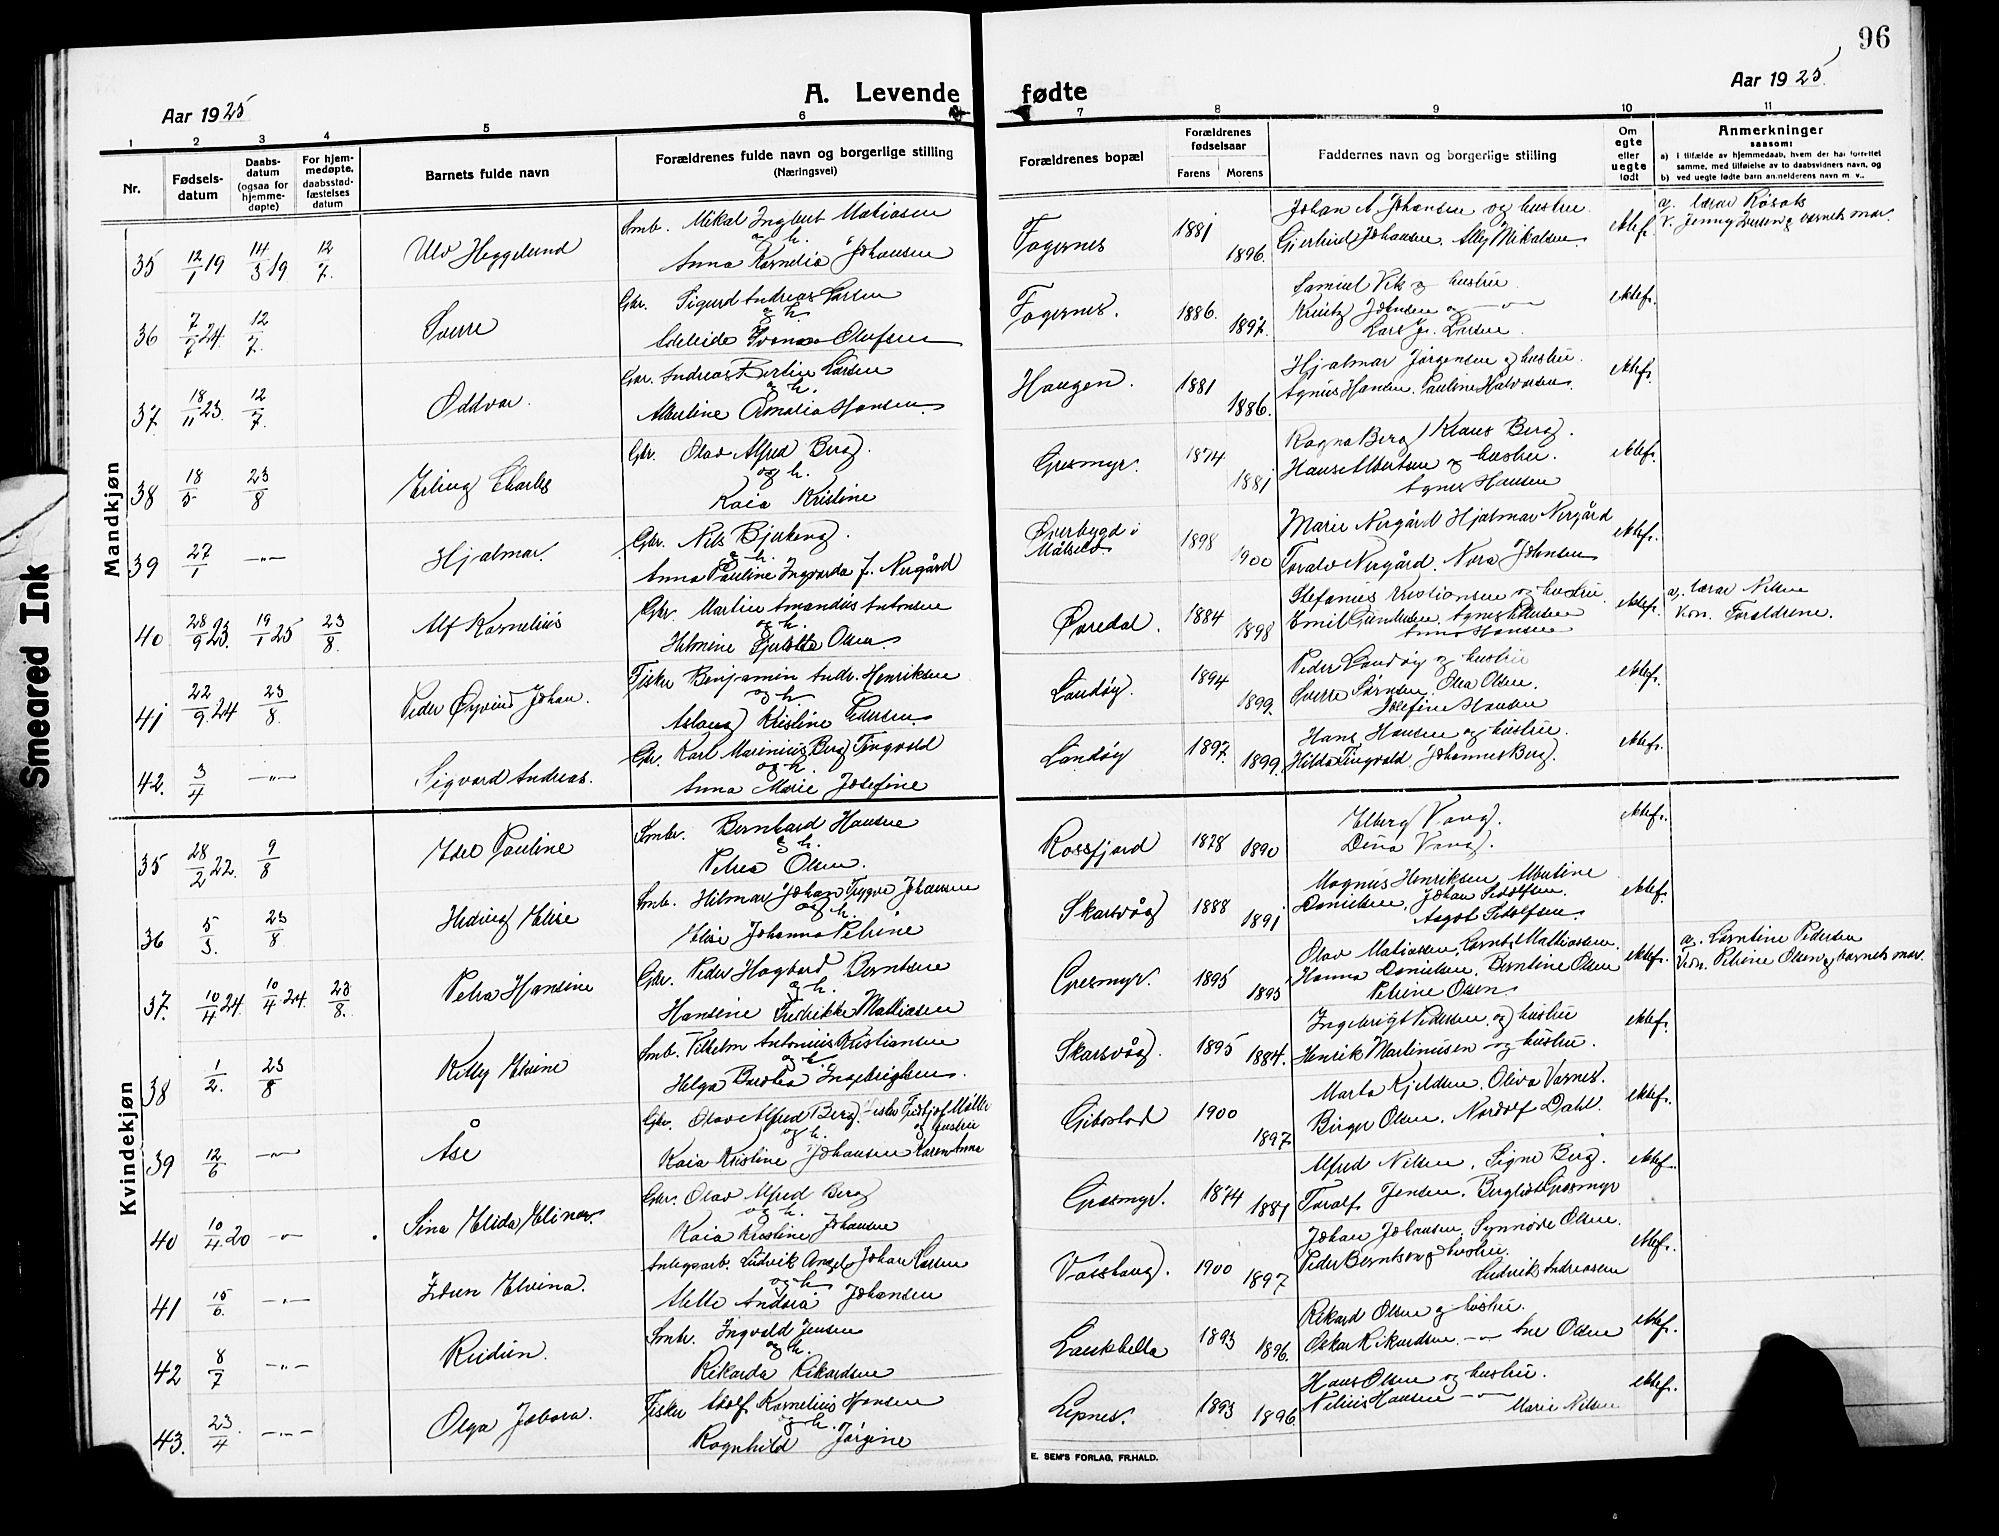 96
Aar 1925
A. Levende
fødte
Aar 1925
1 2 3 4 5 6 7 8 9 10 11
Nr.
Fødsels-
datum
Daabs-
datum
(ogsaa for
hjemme-
døpte)
For hjem-
medøpte,
daabsstad-
fæstelses
datum
Barnets fulde navn
Forældrenes fulde navn og borgerlige stilling
(Næringsvei)
Forældrenes bopæl
Forældrenes
fødselsaar
Farens Morens
Faddernes navn og borgerlige stilling
Om
egte
eller
uegte
født
Anmerkninger
saasom:
a) i tilfælde av hjemmedaab, hvem der har forrettet
samme, med tilføielse av to daabsvidners navn, og
b) ved uegte fødte barn anmelderens navn m. v..
Mandkjøn
35 12/1 19 14/3 19 12/7 Ulv Heggelund
Smb. Mikal Ingbert Matiasen
og h.
Anna Kornelia Johansen
Fagernes 1881 1896.
Johan A. Johansen og hustru
Gjertrud Johansen, Ally Mikalsen
ektef.
a. lærer Røsok
V. Jenny Iversen og barnets mor.
36 7/7 24 12/7 Sverre
Gbr. Sigurd Andreas Larsen
og h.
Adeleide Olufsen
Fagernes. 1886. 1897.
Samuel Vik og hustru
Johnsen og — " —
Lars Larsen.
ektef.
37. 18/11 23. 12/7. Oddvar.
Gbr. Andreas Bertin Larsen
og h.
Albertine Amalia Hansen
Haugen. 1881 1886.
Hjalmar Jørgensen og hustru.
Agnus Hansen. Pauline Halvorsen
ektef.
38 18/5 23/8 Erling Charles
Gbr. Olav Alfred Berg.
og h.
Kaia Kristine
Gresmyr. 1874 1881
Ragna Berg, Klaus Berg.
Hans Albertsen og hustru.
Agnes Hansen
ektef.
39 27/1 — " — Hjalmar.
Gbr. Nils Bjerkeng.
og h.
Anna Pauline Ingvarda f. Nergård
Øverbygd i
Målselv
1898 1900
Marie Nergård Hjalmar Nergård
Toralv Nergård. Nora Johnsen
ektef.
40 28/9 23. 19/1 25 23/8. Alf Kornelius
Gbr. Martin Amandus Antonsen
og h.
Helmine Olsen
Øvredal. 1884 1898
Stefanus Kristiansen og hustru.
Emil Gundersen, Agnes Hansen
Anna Hansen
ektef.
a. lærer Nilsen
Kon. Forældrene.
41 22/9. 24 23/8. Peder Øyvind Johan.
Fisker Benjamin Andr. Henriksen
og h.
Aslaug Kristine Pedersen
Landøy. 1894 1899.
Peder Landøy og hustru
Sverre Sørnsen, Olea Olsen.
Josefine Hansen
ektef.
42. 3/4 — " — Sigvard Andreas.
Gbr. Karl Marinius Berg Tingvold
og h.
Anna Marie Josefine
Landøy 1897. 1899.
Hans Hansen og hustru.
Hilda Tingvald, Johannes Berg.
ektef.
Kvindekjøn
35 28/2 22. 9/8 Edel Pauline
Smbr. Bernhard Hansen
og h.
Petra Olsen.
Rossfjord 1878 1890
Elberg Vang.
Dina Vang.
ektef.
36 5/3. 23/8 Hedvig Elise
Smb. Hilmar Johan Trygve Johansen
og h.
Elise Johanna Petrine
Skarsvåg 1888 1891
Magnus Henriksen, Albertine
Danielsen, Johan Adolfsen.
Aagot Adolfsen.
ektef.
37. 10/4 24. 10/4 24. 23/8. Petra Hansine
Gbr. Peder Hagbard Berntsen
og h.
Hansine Fredrikke Mathiasen
Gresmyr. 1895 1895
Olav Matiassen, Mathiassen.
Hanna Danielsen, Berntine Olsen
Petrine Olsen.
ektef.
a. Berntine Pedersen
Vidn. Petrine Olsen og barnets mor.
38 1/2. 23/8 Kitty Elvine
Smb. Vilhelm Antonius Kristiansen
og h.
Helga Berthea Ingebrigtsen.
Skarsvåg. 1895 1884.
Ingebrigt Pedersen og hustru
Henrik Martinusen og hustru.
ektef.
39 12/6 — " — Åse
Gbr. Olav Alfred Berg. Fisker Fridtjof Møller
og h. og hustru
Kaia Kristine Johansen Karen Anna
Gibostad 1900 1897
Marta Kjeldsen. Oliva Varnes.
Birger Olsen. Nordolf Dahl.
ektef.
40 10/4. 20 — " — Sina Elida Elinor.
Gbr. Olav Alfred Berg
og h.
Kaia Kristine Johansen
Gresmyr. 1874 1881
Alfred Nilsen, Signe Berg.
Toralf Jensen, Bergliot Gresmyr
ektef.
41 15/6. — " — Idun Elvina.
Anlegsarb. Ludvik Angel Johan Larsen
og h
Alette Andrea Johansen
Vasshaug. 1900 1897
Johan Johansen, Synnøve Olsen.
Peder Berntsen og hustru.
Ludvik Andreassen
ektef.
42 8/7 — " — Reidun.
Smbr. Ingvald Jensen
og h.
Rikarda Rikardsen
Laukhella 1893 1896.
Rikard Olsen og hustru.
Oskar Rikardsen — " — Ane Olsen
ektef.
43. 23/4. — " — Olga Jobora.
Fisker Adolf Kornelius Hansen
og h.
Ragnhild Jørgine
Lepnes. 1893 1896
Hans Olsen og hustru
Nelius Hansen — " — Marie Nilsen
ektef.
E. SEM'S FORLAG, FR.HALD.
Smeared Ink